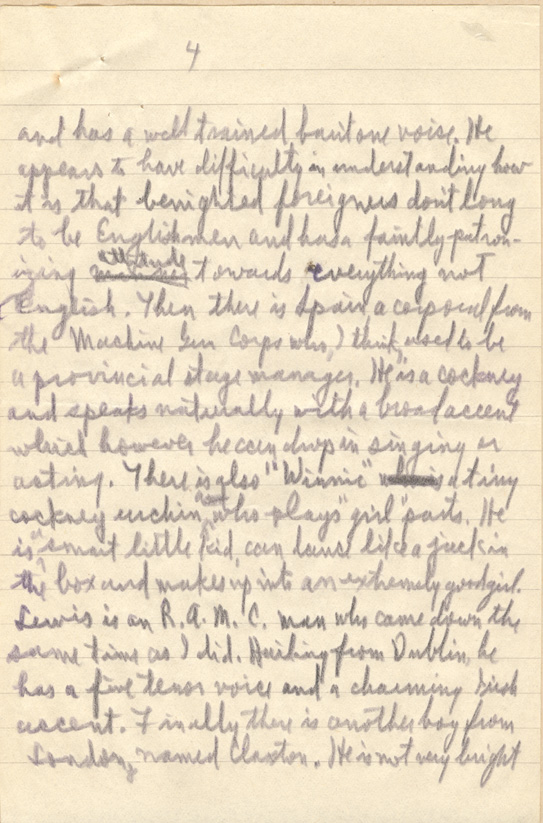 4
and has a well trained baritone voice. He
appears to have difficulty in understanding how
it is that benighted foreigners don't long
to be Englishmen and has a faintly patron-
izing attitude towards everything not
English. Then there is Spain a corporal from
the Machine Gun Corps who, I think, used to be
a provincial stage manager. He is a cockney
and speaks naturally with a broad accent
which however he can drop in singing or
acting. There is also "Winnie" a tiny
cockney urchin, who plays "girl" parts. He
is a smart little kid, can dance like a jack in
the box and makes up into an extremely good girl.
Lewis is an R.A.M.C. man who came down the
same time as I did. Hailing from Dublin, he
has a fine tenor voice and a charming Irish
accent. Finally there is another boy from
London, named Claxton. He is not very bright